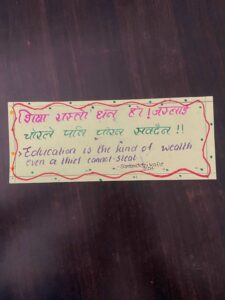 शिक्षा यस्तो धन हो! जसलाई
चोरले पनि चोरेर सक्दैन !!
Education is the kind of wealth
even a thief cannot steal